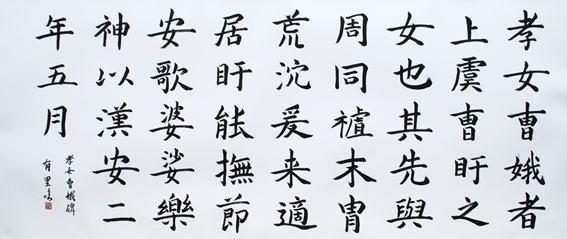 孝女曹娥者
上虞曹盱之
女也其先與
周同祖末胄
荒沈爰来適
居盱能撫節
安歌婆娑樂
神以漢安二
年五月
孝女曹娥碑
有里